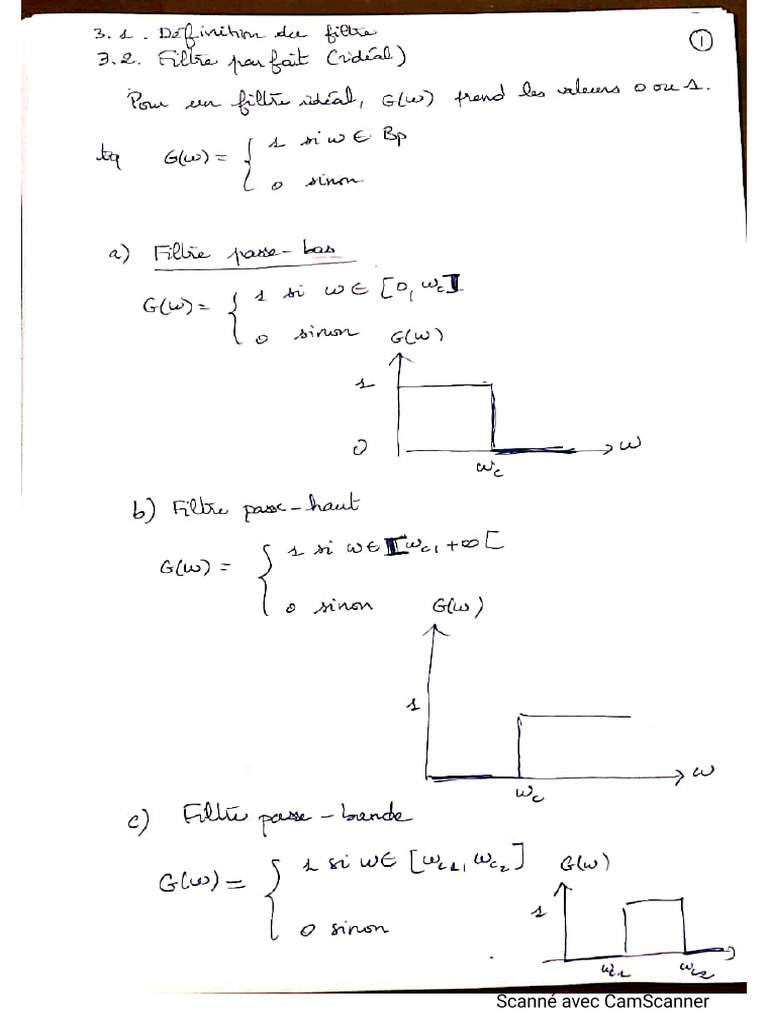 ①
3.1. Définition du filtre
3.2. Filtre parfait (idéal)
Pour un filtre idéal, G(ω) prend les valeurs 0 ou 1.
tq G(ω) = { 1 si ω ∈ Bp
0 sinon
a) Filtre passe-bas
G(ω) = { 1 si ω ∈ [0, ωc]
0 sinon
G(ω)
1
0
ω
ωc
b) Filtre passe-haut
G(ω) = { 1 si ω ∈ [ωc, +∞[
0 sinon
G(ω)
1
ω
ωc
c) Filtre passe-bande
G(ω) = { 1 si ω ∈ [ωc1, ωc2]
0 sinon
G(ω)
1
ωc1 ωc2
Scanné avec CamScanner